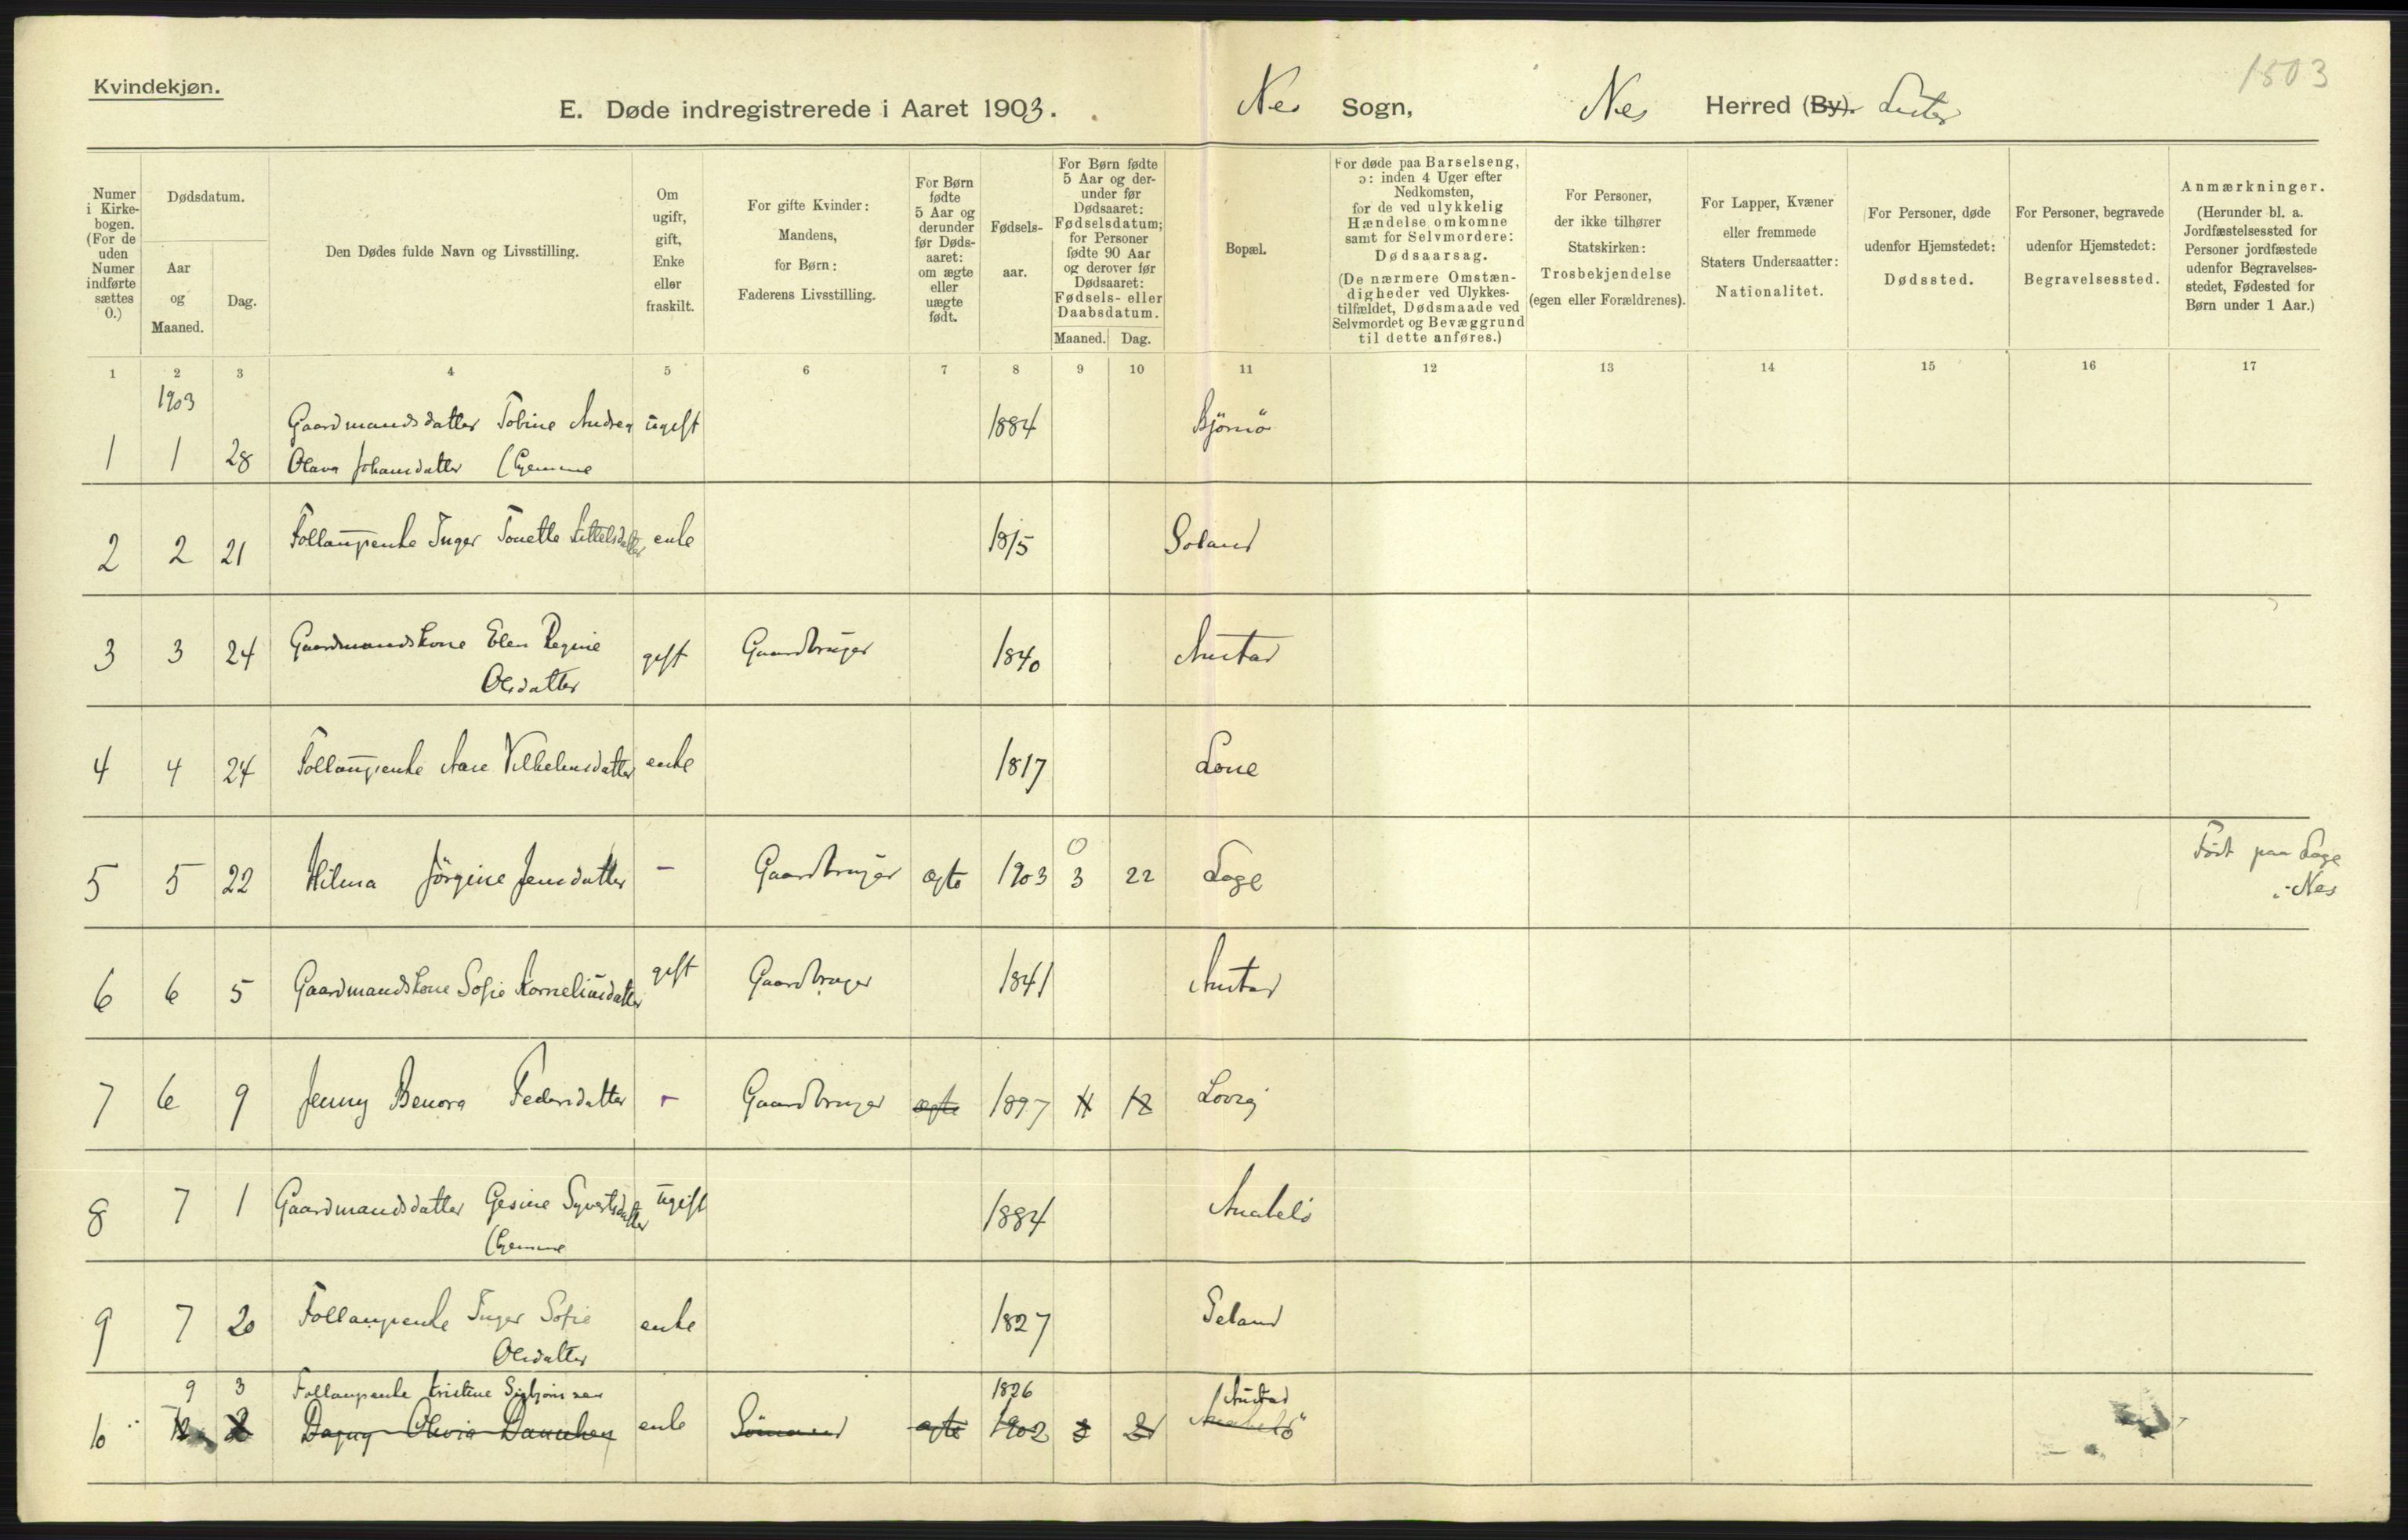 1803
Kvindekjøn.
E. Døde indregistrerede i Aaret 1903. Nes Sogn, Nes Herred (By). Lister
Numer i Kirke-bogen. (For de uden Numer indførte sættes 0.)
Dødsdatum.
Aar og Maaned.
Dag.
Den Dødes fulde Navn og Livsstilling.
Om ugift, gift, Enke eller fraskilt.
For gifte Kvinder: Mandens, for Børn: Faderens Livsstilling.
For Børn fødte 5 Aar og derunder før Døds-aaret: om ægte eller uægte født.
Fødsels-aar.
For Børn fødte 5 Aar og der-under før Dødsaaret: Fødselsdatum; for Personer fødte 90 Aar og derover før Dødsaaret: Fødsels- eller Daabsdatum.
Maaned. Dag.
Bopæl.
For døde paa Barselseng, ɔ: inden 4 Uger efter Nedkomsten, for de ved ulykkelig Hændelse omkomne samt for Selvmordere: Dødsaarsag. (De nærmere Omstæn-digheder ved Ulykkes-tilfældet, Dødsmaade ved Selvmordet og Bevæggrund til dette anføres.)
For Personer, der ikke tilhører Statskirken: Trosbekjendelse (egen eller Forældrenes).
For Lapper, Kvæner eller fremmede Staters Undersaatter: Nationalitet.
For Personer, døde udenfor Hjemstedet: Dødssted.
For Personer, begravede udenfor Hjemstedet: Begravelsessted.
Anmærkninger. (Herunder bl. a. Jordfæstelsessted for Personer jordfæstede udenfor Begravelses-stedet, Fødested for Børn under 1 Aar.)
1 2 3 4 5 6 7 8 9 10 11 12 13 14 15 16 17
1903
Gaardmandsdatter Tobine Andrea ugift 1884 Björnö
1 1 28 Olava Johansdatter (hjemme
2 2 21 Follaugsenke Inger Tonette Kittelsdatter enke 1815 Soland
3 3 24 Gaardmandskone Elen Regine gift Gaardbruger 1840 Austad
Olsdatter
4 4 24 Follaugsenke Aase Vilhelmsdatter enke 1817 Lone
0 Født paa Lage
5 5 22 Hilma Jörgine Jensdatter - Gaardbruger ægte 1903 3 22 Lage
Nes
6 6 5 Gaardmandskone Sofie Korneliusdatter gift Gaardbruger 1841 Austad
7 6 9 Jenny Benora Pedersdatter - Gaardbruger ægte 1897 11 12 Lovig
8 7 1 Gaardmandsdatter Gesine Syvertsdatter ugift 1884 Anabelö
(hjemme
9 7 20 Follaugsenke Inger Sofie enke 1827 Seland
Olsdatter
9 3 Follaugsenke Kristine Sigbjörnsen 1826 Austad
10 12 2 Dagny Olivia enke Sömand ægte 1902 3 Anabelö